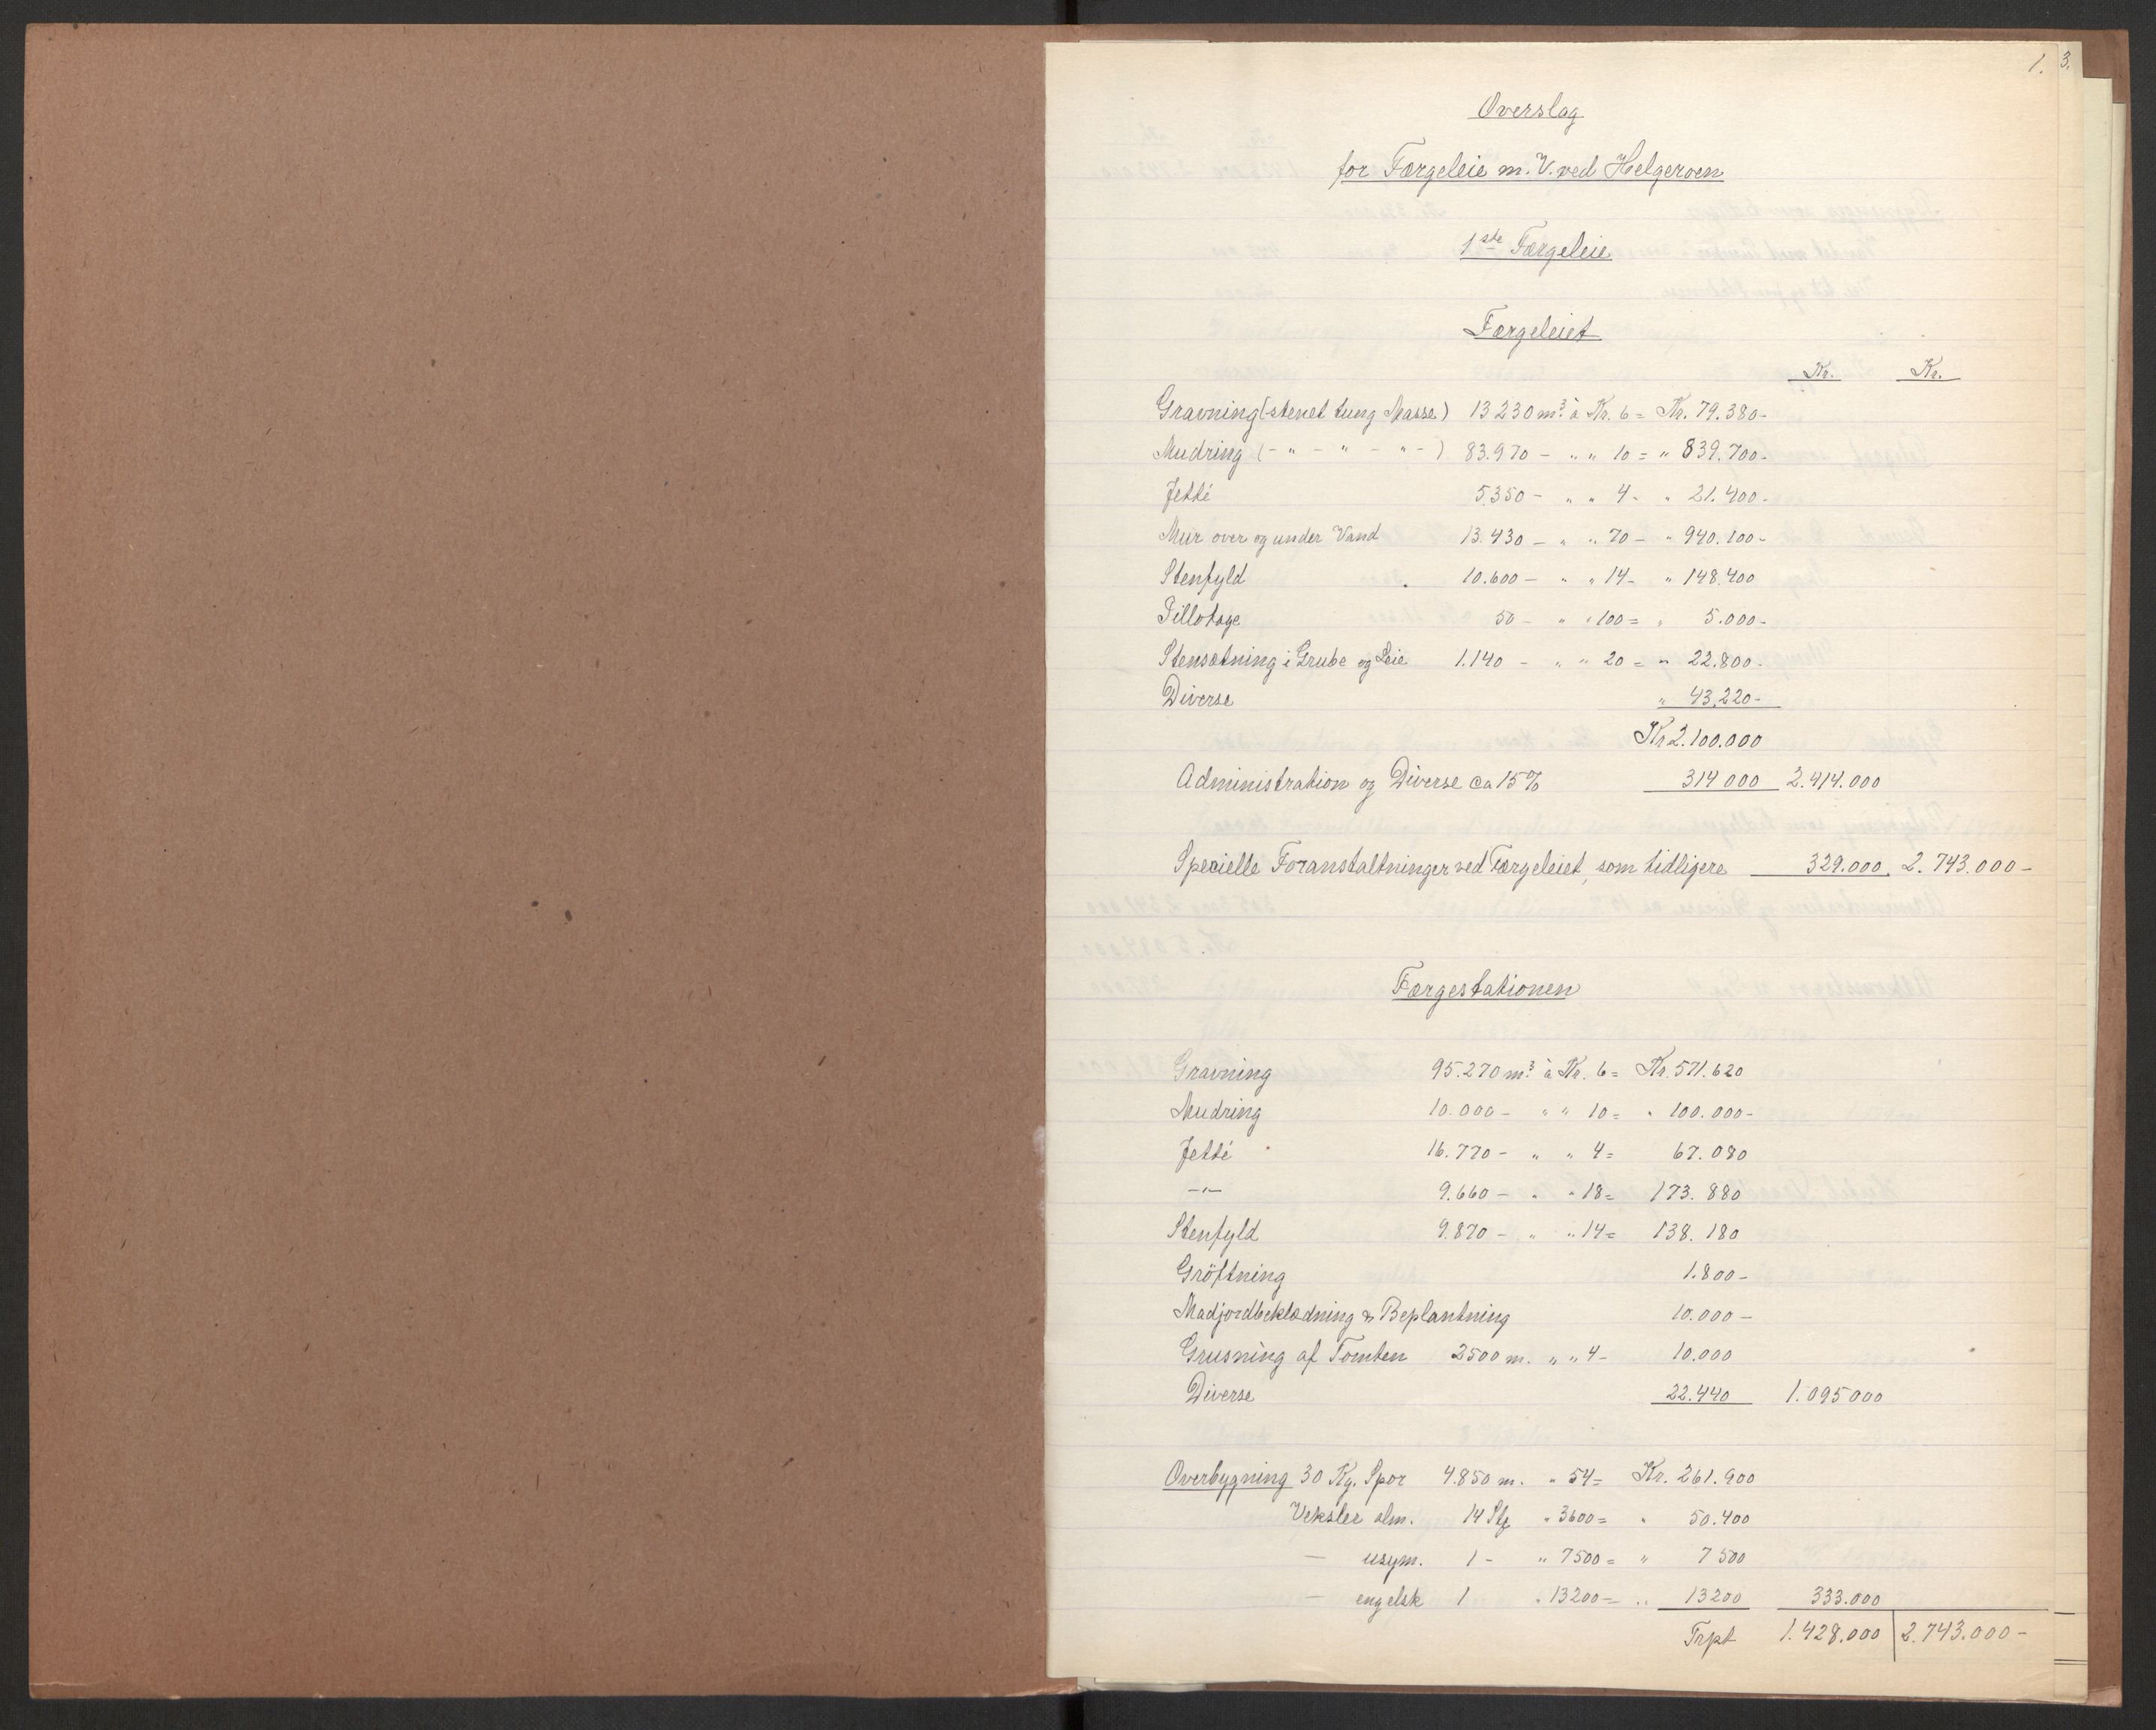 1. 3.
Overslag
for Færgeleie m. V. ved Helgeroen
1ste Færgeleie
Færgeleiet
Kr. Kr.
Gravning (stenet tung Masse) 13230 m³ à Kr. 6 = Kr. 79.380-
Mudring (- " - " - " -) 83.970 - " " 10 = " 839.700-
Jetté 5350 - " " 4 - " 21.400-
Mur over og under Vand 13.430 - " " 70 - " 940.100-
Stenfyld 10.600 - " " 14 - " 148.400
Pillotage 50 - " " 100 = " 5.000-
Stensætning i Grube og Leie 1.140 - " " 20 = " 22.800-
Diverse " 43.220-
Kr 2.100.000
Administration og Diverse ca 15% 314 000 2.414.000
Specielle Foranstaltninger ved Færgeleiet, som tidligere 329.000. 2.743.000-
Færgestationen
Gravning 95.270 m³ à Kr. 6 = Kr. 571.620
Mudring 10.000 - " " 10 = " 100.000-
Jetté 16.770 - " " 4 = 67.080
-"- 9.660 - " " 18 = 173.880
Stenfyld 9.870 - " " 14 = 138.180
Gröftning 1.800-
Madjordbeklædning & Beplantning 10.000-
Grusning af Tomten 2500 m. " " 4 - 10.000
Diverse 22.440 1.095 000
Overbygning 30 Kg. Spor 4.850 m. " 54 = Kr. 261.900
Veksler alm. 14 Stk " 3600 = " 50.400
- usym. 1 - " 7500 = " 7 500
- engelsk 1 " 13200 = " 13200 333.000
Trpt 1.428.000 2.743.000-